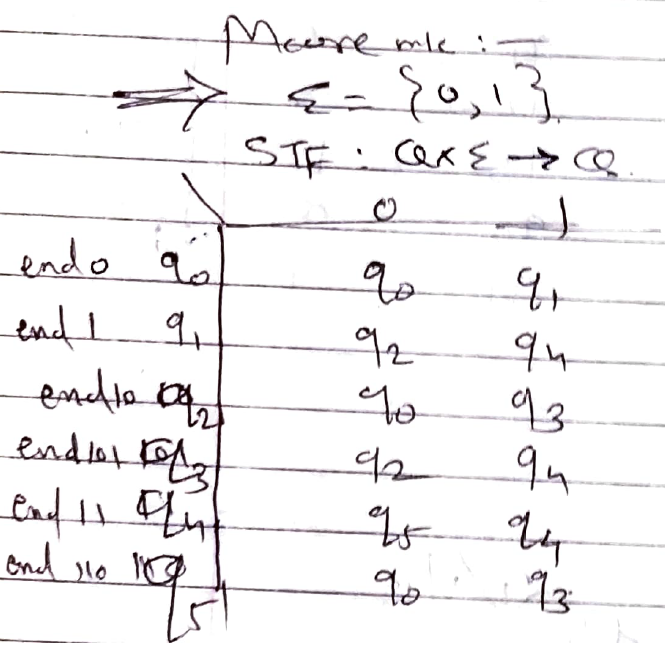 Moore m/c : —
⇒ Σ = {0, 1}.
STF : Q x Σ → Q.
0 1
end 0 q0 q0 q1
end 1 q1 q2 q4
end 10 q2 q0 q3
end 101 q3 q2 q4
end 11 q4 q5 q4
end 110 q5 q0 q3